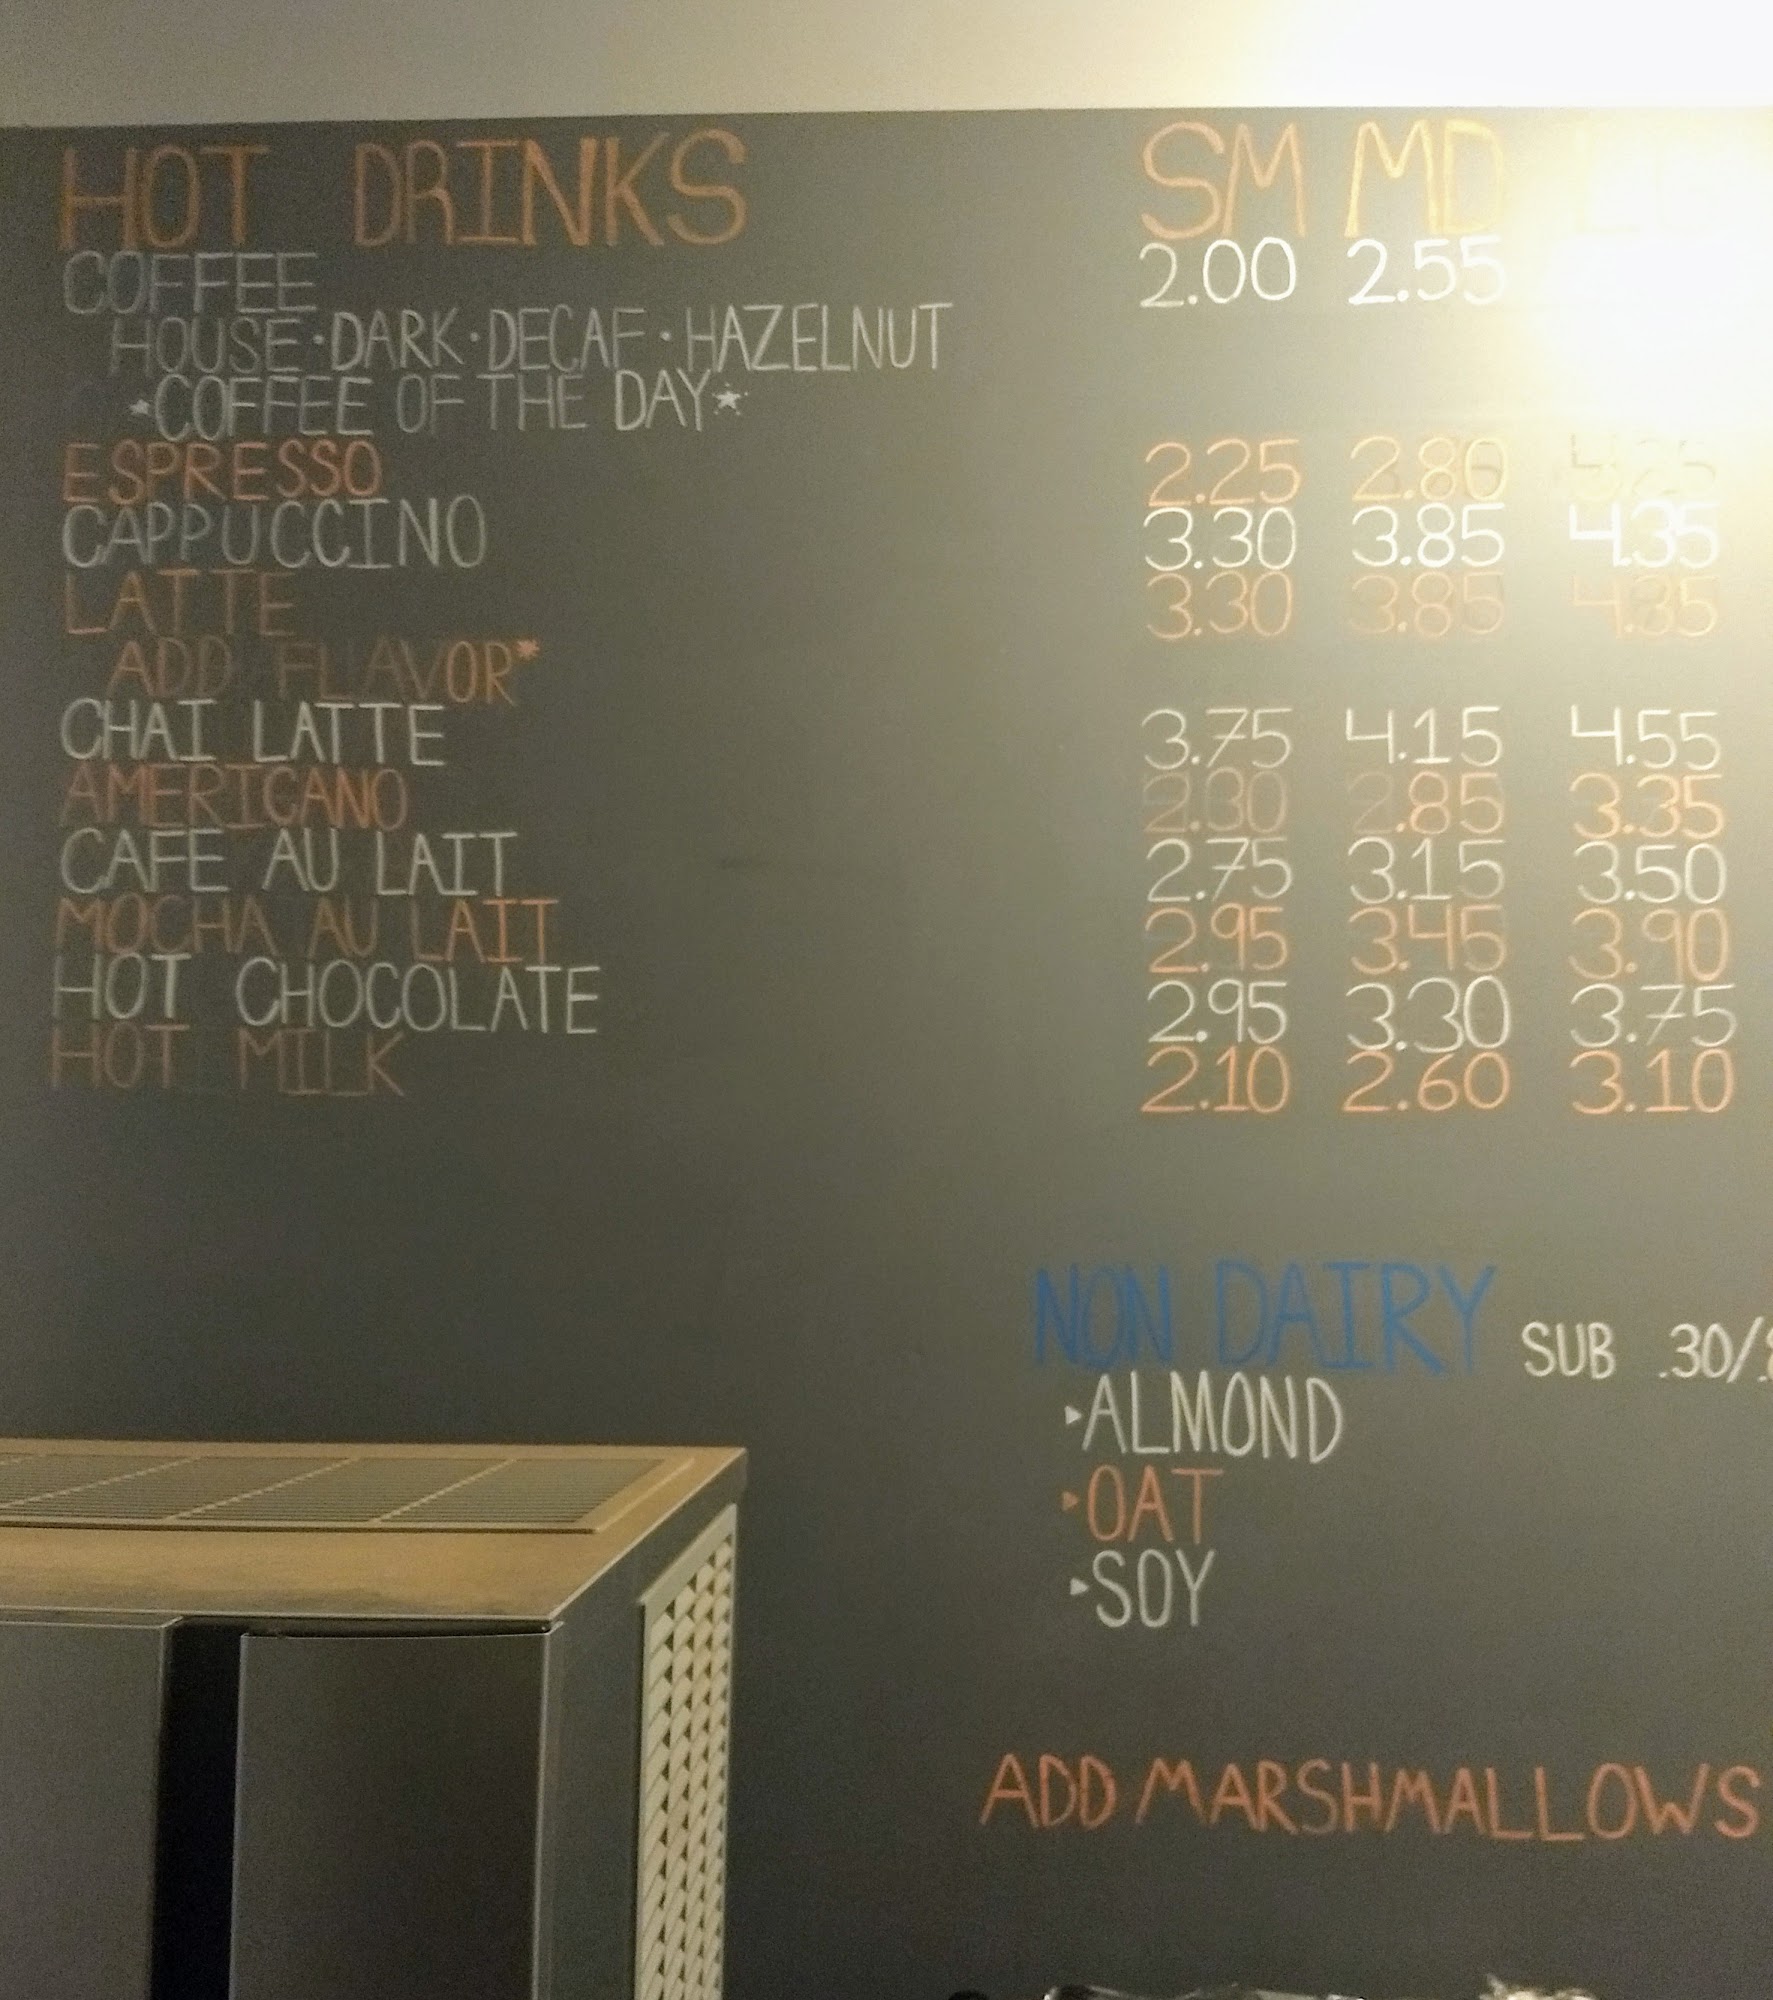 HOT DRINKS SM MD
COFFEE 2.00 2.55
HOUSE·DARK·DECAF·HAZELNUT
*COFFEE OF THE DAY*
ESPRESSO 2.25 2.80
CAPPUCCINO 3.30 3.85 4.35
LATTE 3.30 3.85 4.35
ADD FLAVOR*
CHAI LATTE 3.75 4.15 4.55
AMERICANO 2.30 2.85 3.35
CAFE AU LAIT 2.75 3.15 3.50
MOCHA AU LAIT 2.95 3.45 3.90
HOT CHOCOLATE 2.95 3.30 3.75
HOT MILK 2.10 2.60 3.10
NON DAIRY SUB .30/
▸ALMOND
▸OAT
▸SOY
ADD MARSHMALLOWS